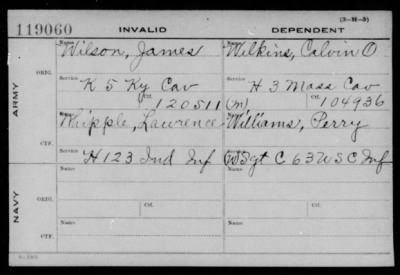 (3-H-3)
119060 INVALID DEPENDENT
Name Name
Wilson, James Wilkins, Calvin O
ORIG.
Service Service
K 5 Ky Cav H 3 Mass Cav
Ctf. 120511 (m) Ctf. 104936
ARMY
Name
Whipple, Lawrence Williams, Perry
CTF.
Service
H 123 Ind Inf (W) Sgt C 63 U S C Inf
Name Name
ORIG.
Service Ctf. Service Ctf.
NAVY
Name Name
CTF.
Service Service